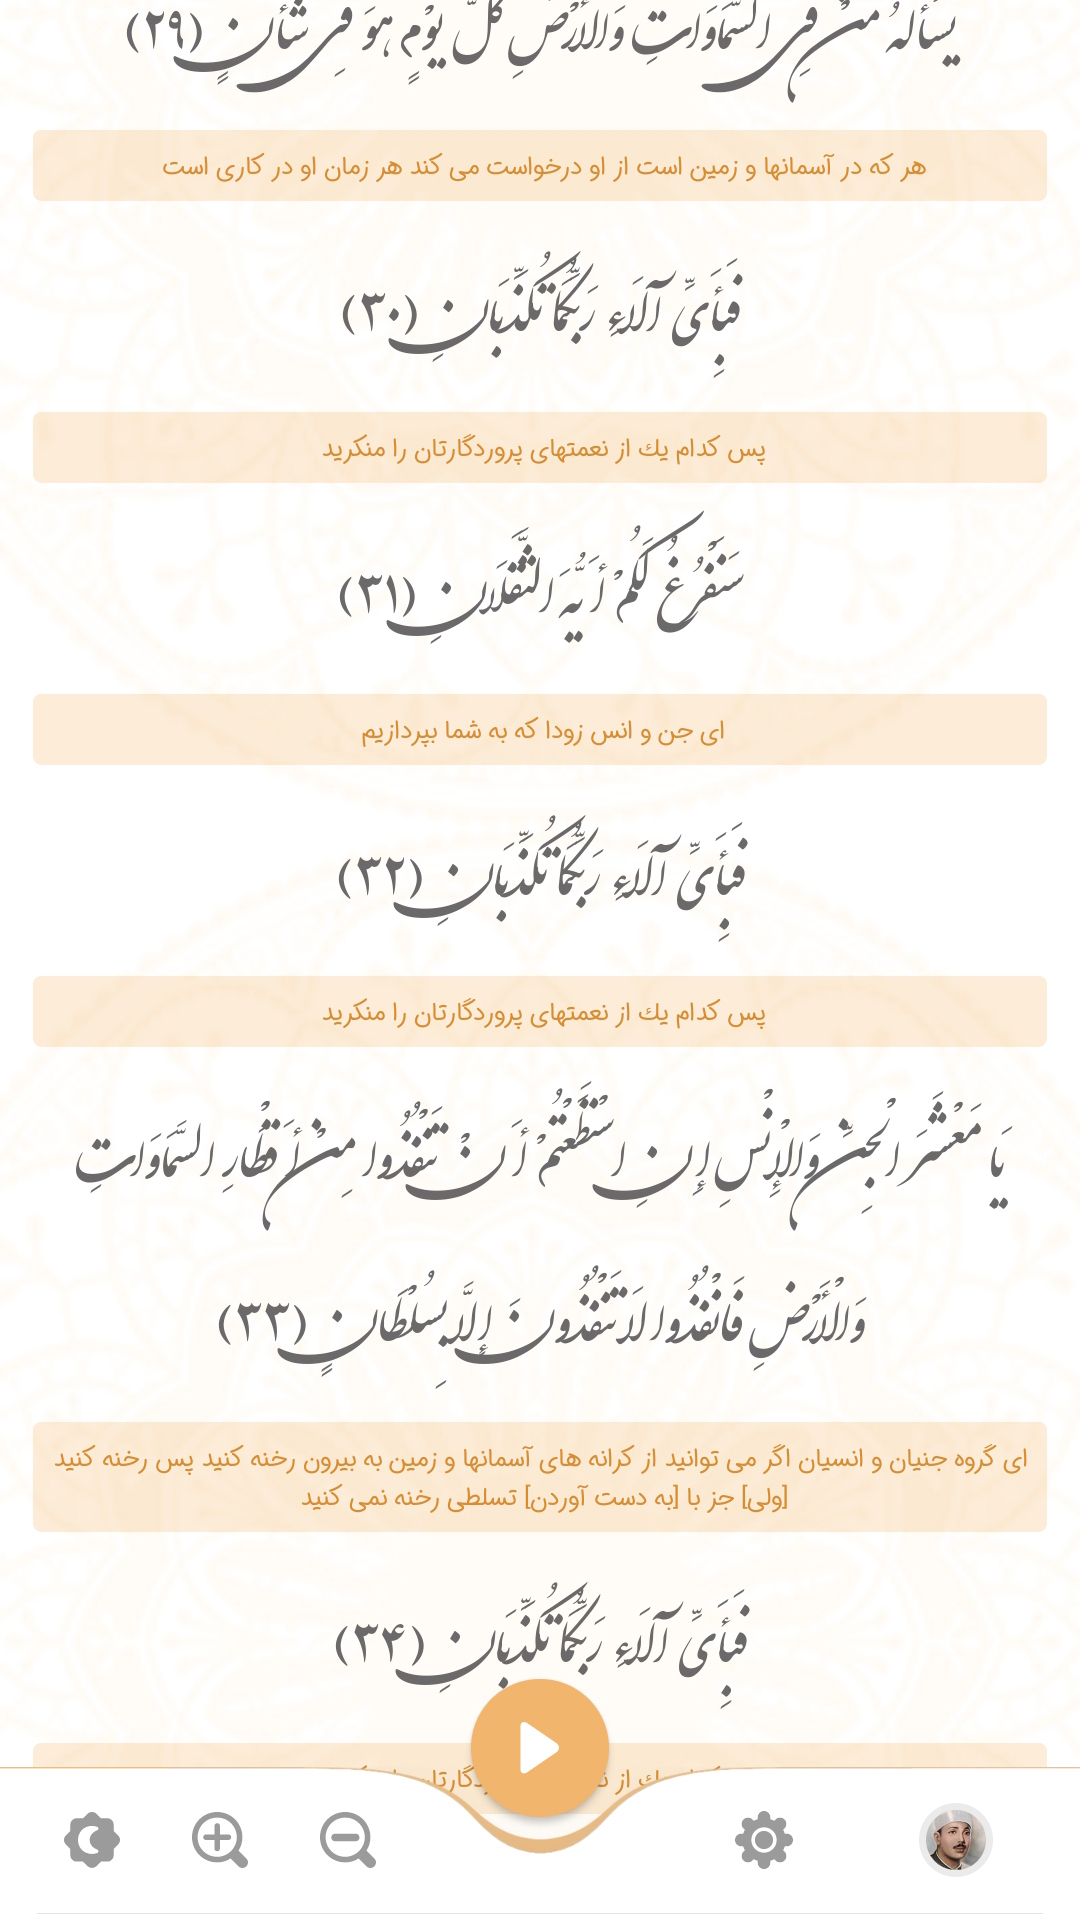 يَسْأَلُهُ مَنْ فِي السَّمَاوَاتِ وَالْأَرْضِ كُلَّ يَوْمٍ هُوَ فِي شَأْنٍ (۲۹)
هر که در آسمانها و زمین است از او درخواست می کند هر زمان او در کاری است
فَبِأَيِّ آلَاءِ رَبِّكُمَا تُكَذِّبَانِ (۳۰)
پس کدام یك از نعمتهای پروردگارتان را منکرید
سَنَفْرُغُ لَكُمْ أَيُّهَ الثَّقَلَانِ (۳۱)
ای جن و انس زودا که به شما بپردازیم
فَبِأَيِّ آلَاءِ رَبِّكُمَا تُكَذِّبَانِ (۳۲)
پس کدام یك از نعمتهای پروردگارتان را منکرید
يَا مَعْشَرَ الْجِنِّ وَالْإِنْسِ إِنِ اسْتَطَعْتُمْ أَنْ تَنْفُذُوا مِنْ أَقْطَارِ السَّمَاوَاتِ
وَالْأَرْضِ فَانْفُذُوا لَا تَنْفُذُونَ إِلَّا بِسُلْطَانٍ (۳۳)
ای گروه جنیان و انسیان اگر می توانید از کرانه های آسمانها و زمین به بیرون رخنه کنید پس رخنه کنید
[ولی] جز با [به دست آوردن] تسلطی رخنه نمی کنید
فَبِأَيِّ آلَاءِ رَبِّكُمَا تُكَذِّبَانِ (۳۴)